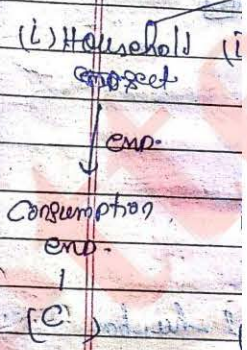 (i) Household (i
exp.
Consumption
exp.
(C)